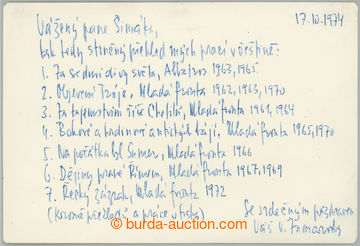 17.10.1974
Vážený pane Šimáčku,
tak tedy stručný přehled mých prací v češtině:
1. Za sedmi divy světa, Albatros 1963, 1965
2. Objevení Tróje, Mladá fronta 1962, 1963, 1970
3. Za tajemstvím říše Chetitů, Mladá fronta 1961, 1964
4. Bohové a hrdinové antických bájí, Mladá fronta 1965, 1970
5. Na počátku byl Sumer, Mladá fronta 1966
6. Dějiny psané Římem, Mladá fronta 1967, 1969
7. Řecký zázrak, Mladá fronta 1972
(kromě překladů a práce v tisku)
Se srdečným pozdravem
Váš V. Zamarovský
burda-auction.com